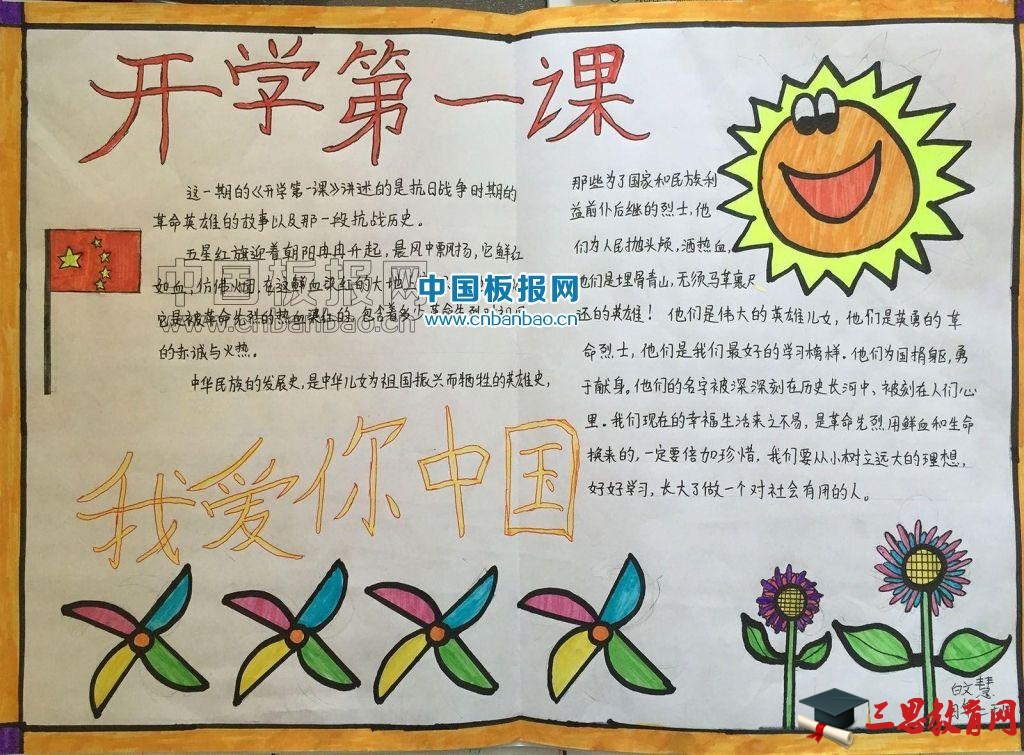 开学第一课
这一期的《开学第一课》讲述的是抗日战争时期的
革命英雄的故事以及那一段抗战历史。
五星红旗迎着朝阳冉冉升起，晨风中飘扬，它鲜红
如血，仿佛火团，在这鲜血染红的大地上
它是被革命先烈的热血染红的，包含着多少革命先烈对祖国
的赤诚与火热。
中华民族的发展史，是中华儿女为祖国振兴而牺牲的英雄史，
我爱你中国
那些为了国家和民族利
益前仆后继的烈士，他
们为人民抛头颅，洒热血，
他们是埋骨青山，无须马革裹尸
还的英雄！他们是伟大的英雄儿女，他们是英勇的革
命烈士，他们是我们最好的学习榜样。他们为国捐躯，勇
于献身。他们的名字被深深刻在历史长河中、被刻在人们心
里。我们现在的幸福生活来之不易，是革命先烈用鲜血和生命
换来的，一定要倍加珍惜，我们要从小树立远大的理想，
好好学习，长大了做一个对社会有用的人。
中国板报网
www.cnbanbao.cn
中国板报网
www.cnbanbao.cn
慧
三思教育网